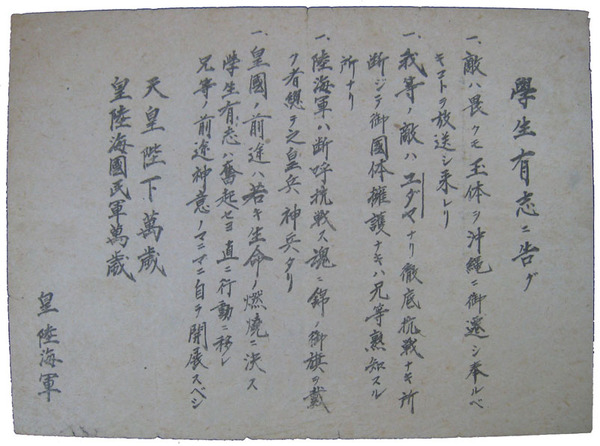 學生有志ニ告グ
一、敵ハ畏クモ玉体ヲ沖縄ニ御遷シ奉ルベ
キコトヲ放送シ来レリ
一、我等ノ敵ハユダヤナリ徹底抗戦ナキ所
断ジテ御國体擁護ナキハ兄等熟知スル
所ナリ
一、陸海軍ハ断乎抗戦ス魂ニ錦ノ御旗ヲ戴
ク者總ヲ之皇兵神兵タリ
一、皇國ノ前途ハ若キ生命ノ燃燒ニ決ス
學生有志ハ奮起セヨ直ニ行動ニ移レ
兄等ノ前途神意ノマニマニ自ラ開展スベシ
天皇陛下萬歳
皇陸海國民軍萬歳
皇陸海軍